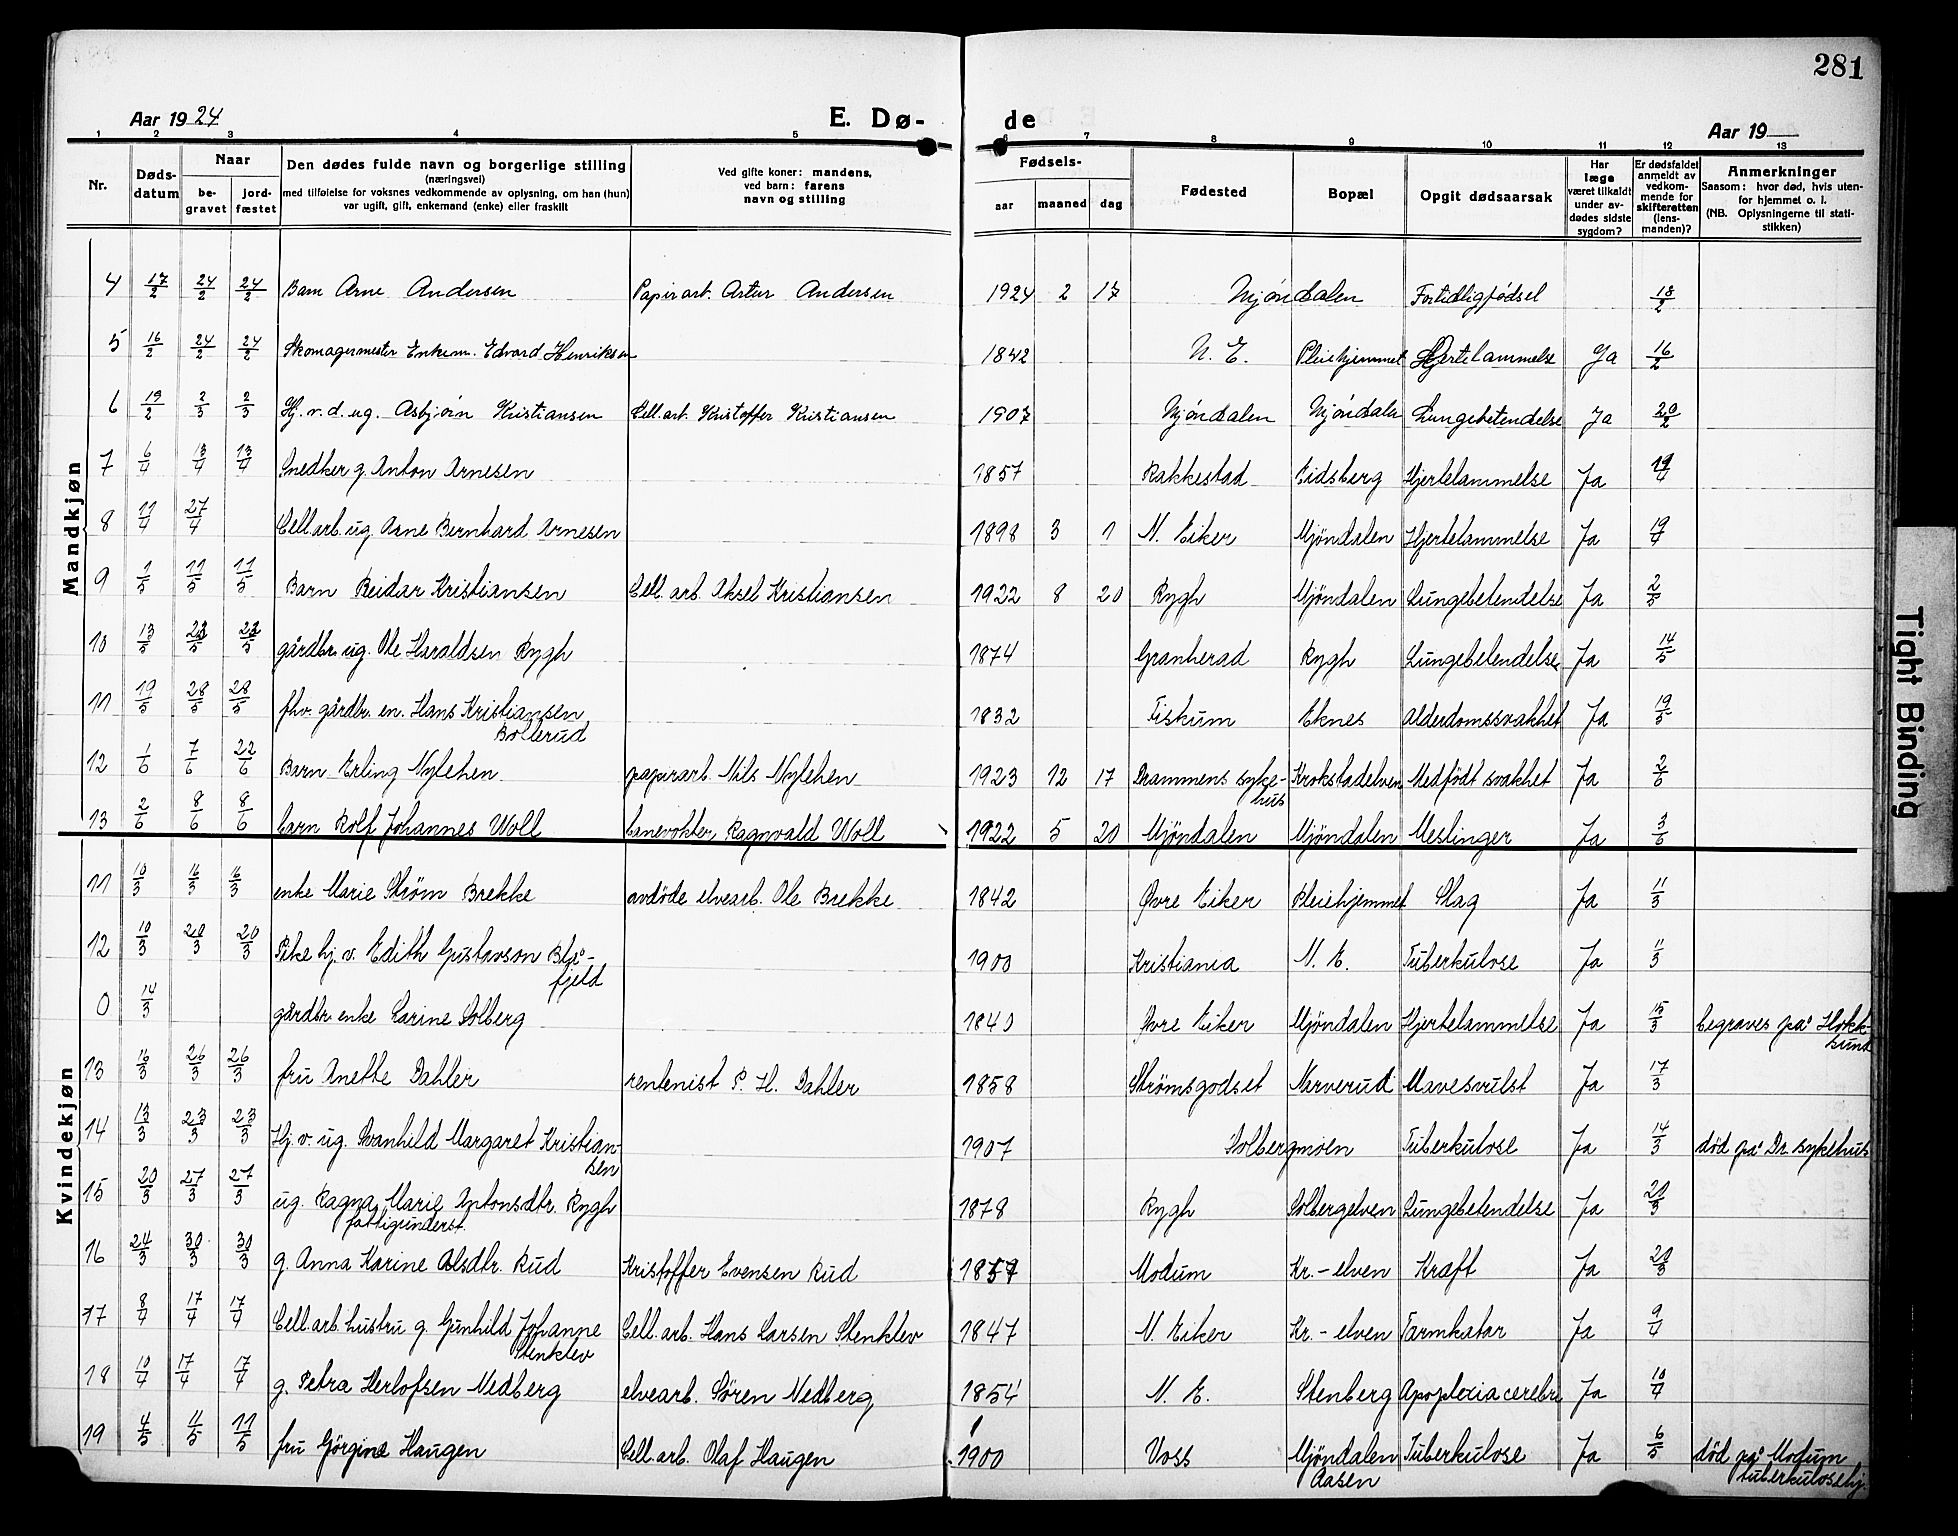 281
Aar 1924
E. Dø-
de
Aar 19
1 2 3 4 5 6 7 8 9 10 11 12 13
Nr.
Døds-
datum
Naar
be-
gravet
jord-
fæstet
Den dødes fulde navn og borgerlige stilling
(næringsvei)
med tilføielse for voksnes vedkommende av oplysning, om han (hun)
var ugift, gift, enkemand (enke) eller fraskilt
Ved gifte koner: mandens,
ved barn: farens
navn og stilling
Fødsels-
aar maaned dag
Fødested
Bopæl
Opgit dødsaarsak
Har
læge
været tilkaldt
under av-
dødes sidste
sygdom?
Er dødsfaldet
anmeldt av
vedkom-
mende for
skifteretten
(lens-
manden)?
Anmerkninger
Saasom: hvor død, hvis uten-
for hjemmet o. l.
(NB. Oplysningerne til stati-
stikken)
Mandkjøn
4 17/2 24/2 24/2 Barn Arne Andersen Papirarb. Artur Andersen 1924 2 17 Mjøndalen Fortidligfødsel 18/2
5 16/2 24/2 24/2 Skomagermester Enkem. Edvard Henriksen 1842 N. E. Pleiehjemmet Hjertelammelse Ja 16/2
6 19/2 2/3 2/3 Hj. v. d. ug. Asbjørn Kristiansen Cell. arb. Kristoffer Kristiansen 1907 Mjøndalen Mjøndalen Lungebetendelse Ja 20/2
7 6/4 13/4 13/4 Snedker g. Anton Arnesen 1857 Rakkestad Eidsberg Hjertelammelse Ja
8 11/4 27/4 Cell. arb. ug. Arne Bernhard Arnesen 1898 3 1 N. Eiker Mjøndalen Hjertelammelse Ja 19/4
9 1/5 11/5 11/5 Barn Reidar Kristiansen Cell. arb. Aksel Kristiansen 1922 8 20 Rygh Mjøndalen Lungebetendelse Ja 2/5
10 13/5 gårdbr. ug. Ole Haraldsen Rygh 1874 Granherad Rygh Lungebetendelse Ja 14/5
11 19/5 28/5 28/5 fhv. gårdbr. en. Hans Kristiansen
Bollerud 1832 Fiskum Eknes Alderdomssvakhet Ja 19/5
12 1/6 7/6 22/6 Barn Erling Nylehen papirarb. Nils Nylehen 1923 12 17 Drammens syke-
hus Krokstadelven Medfødt svakhet Ja 2/6
13 2/6 8/6 8/6 barn Rolf Johannes Woll banevokter Ragnvald Woll 1922 5 20 Mjøndalen Mjøndalen Meslinger Ja 3/6
Kvindekjøn
11 10/3 16/3 16/3 enke Marie Strøm Brekke avdøde elvearb. Ole Brekke 1842 Øvre Eiker Pleiehjemmet Slag Ja 11/3
12 10/3 20/3 20/3 Pike hj. v. Edith Gustavson Blå-
fjeld 1900 Kristiania N. E. Tuberkulose Ja 11/3
0 14/3 gårdbr. enke Karine Solberg 1840 Øvre Eiker Mjøndalen Hjertelammelse Ja 15/3 begraves på Hokk-
sund
13 16/3 26/3 26/3 fru Anette Dahler rentenist P. H. Dahler 1858 Strømsgodset Narverud Mavesvulst Ja 17/3
14 13/3 23/3 23/3 Hj. v. ug. Svanhild Margaret Kristian-
sen 1907 Solbergmoen Tuberkulose Ja 14/3 død på Dr. sykehus
15 20/3 27/3 27/3 ug. Ragna Marie Antonsdtr. Rygh
fattigunderst. 1878 Rygh Solbergelven Lungebetendelse Ja 20/3
16 24/3 30/3 30/3 g. Anna Karine Olsdtr. Rud Kristoffer Evensen Rud 1857 Modum Kr.-elven Kræft Ja 20/3
17 8/4 17/4 17/4 Cell. arb. hustru g. Gunhild Johanne
Stenklev Cell. arb. Hans Larsen Stenklev 1847 N. Eiker Kr.-elven Tarmkatar Ja 9/4
18 10/4 17/4 17/4 g. Petra Herlofsen Nedberg elvearb. Søren Nedberg 1854 N. E. Stenberg Apoplexia cerebri Ja 10/4
19 4/5 11/5 11/5 fru Görgine Haugen Cell. arb. Olaf Haugen 1900 Voss Mjøndalen
Aasen Tuberkulose Ja 6/5 død på Modum
tuberkulosehj.
Tight Binding